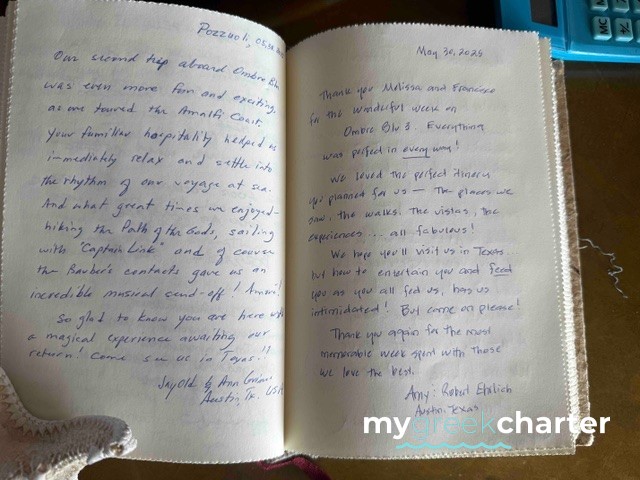 Pozzuoli, 05.30
Our second trip aboard Ombre Blu
was even more fun and exciting,
as we toured the Amalfi Coast.
Your familiar hospitality helped us
immediately relax and settle into
the rhythm of our voyage at sea.
And what great times we enjoyed-
hiking the Path of the Gods, sailing
with "Captain Link" and of course
the Barber's contacts gave us an
incredible musical send-off!
So glad to know you are here with
a magical experience awaiting our
return! Come see us in Texas!!
& Ann
Austin, Tx. USA
May 30, 2025
Thank you Melissa and Francisco
for the wonderful week on
Ombre Blu 3. Everything
was perfect in every way!
We loved the perfect itinerary
you planned for us — The places we
saw, the walks. The vistas, the
experiences ... all fabulous!
We hope you'll visit us in Texas...
but how to entertain you and feed
you as you all fed us, has us
intimidated! But come on please!
Thank you again for the most
memorable week spent with those
we love the best.
Amy & Robert Ehrlich
Austin, Texas
mygreekcharter